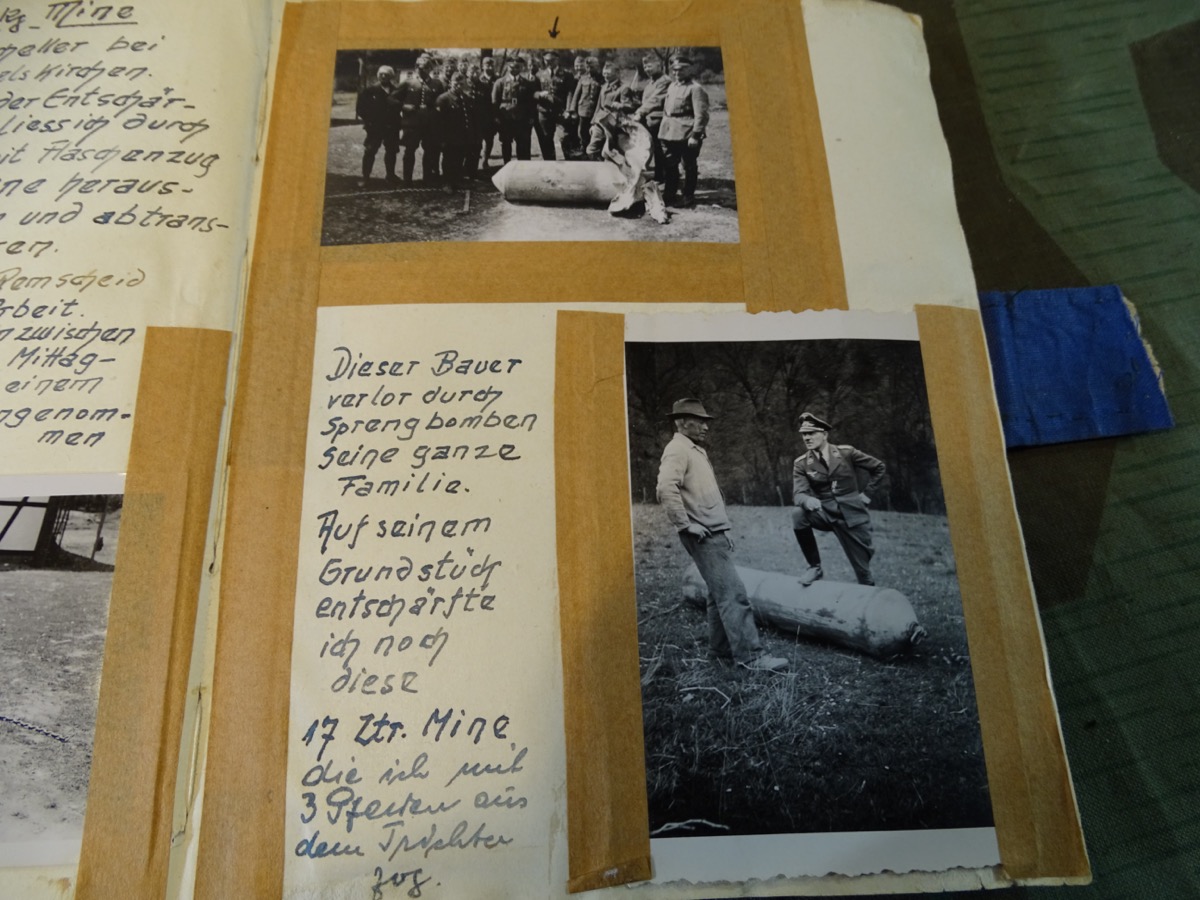 Kg Mine
bei
Kirchen.
der Entschär-
liess ich durch
mit Flaschenzug
heraus-
und abtrans-
Remscheid
Arbeit.
inzwischen
Mittag-
einem
men
Dieser Bauer
verlor durch
Sprengbomben
seine ganze
Familie.
Auf seinem
Grundstück
entschärfte
ich noch
diese
17 Ztr. Mine
die ich mit
3 Pferden aus
dem Trichter
zog.